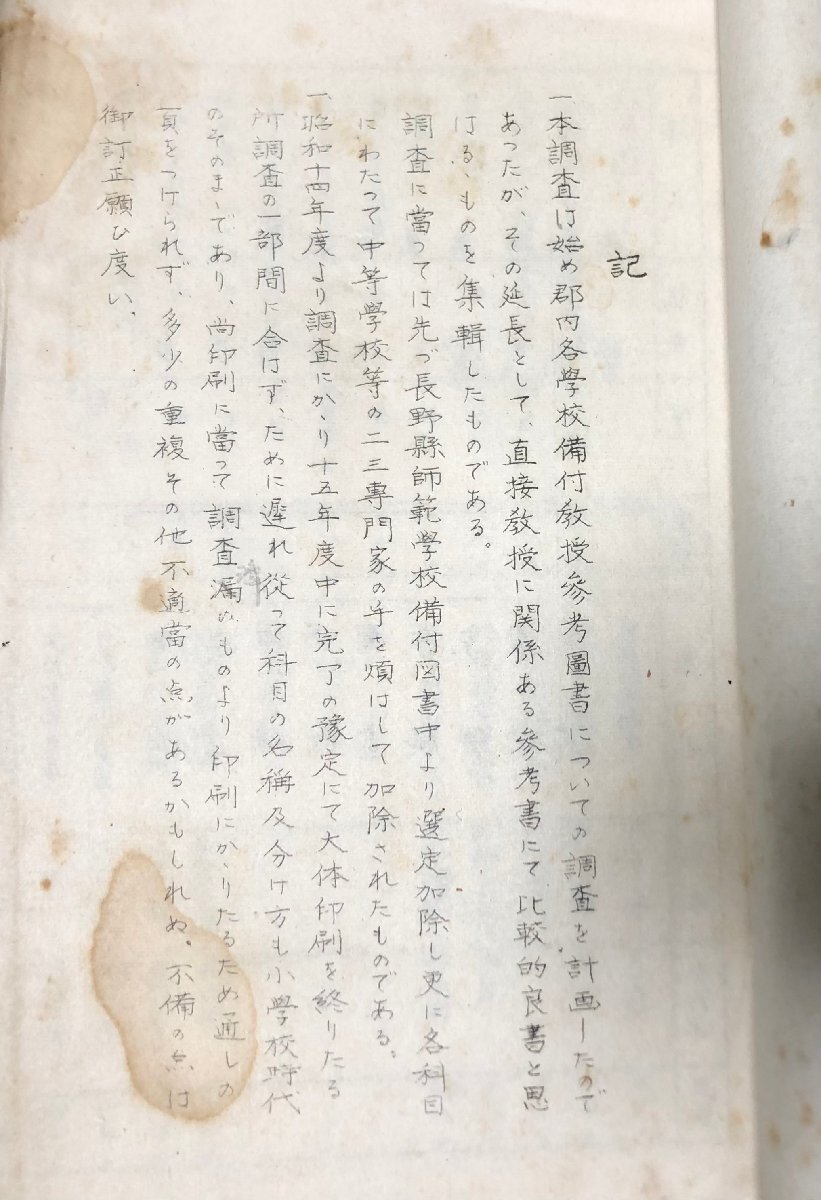 記
一、本調査は始め郡内各學校備付教授參考圖書についての調査を計画したので
あつたが、その延長として、直接教授に関係ある參考書にて比較的良書と思
はるゝものを集輯したものである。
調査に當つては先づ長野縣師範學校備付図書中より選定加除し更に各科目
にわたつて中等學校等の二三專門家の手を煩はして加除されたものである。
一、昭和十四年度より調査にかゝり十五年度中に完了の豫定にて大体印刷を終りたる
所調査の一部間に合はず、ために遲れ從つて科目の名稱及分け方も小學校時代
のそのまゝであり、尚印刷に當つて調査漏のものより印刷にかゝりたるため通しの
頁をつけられず、多少の重複その他不適當の点があるかもしれぬ。不備の点は
御訂正願ひ度い。